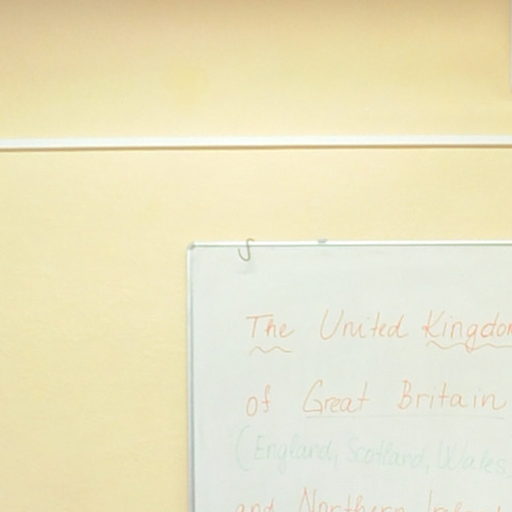 The United Kingdom
of Great Britain
(England, Scotland, Wales,
and Northern